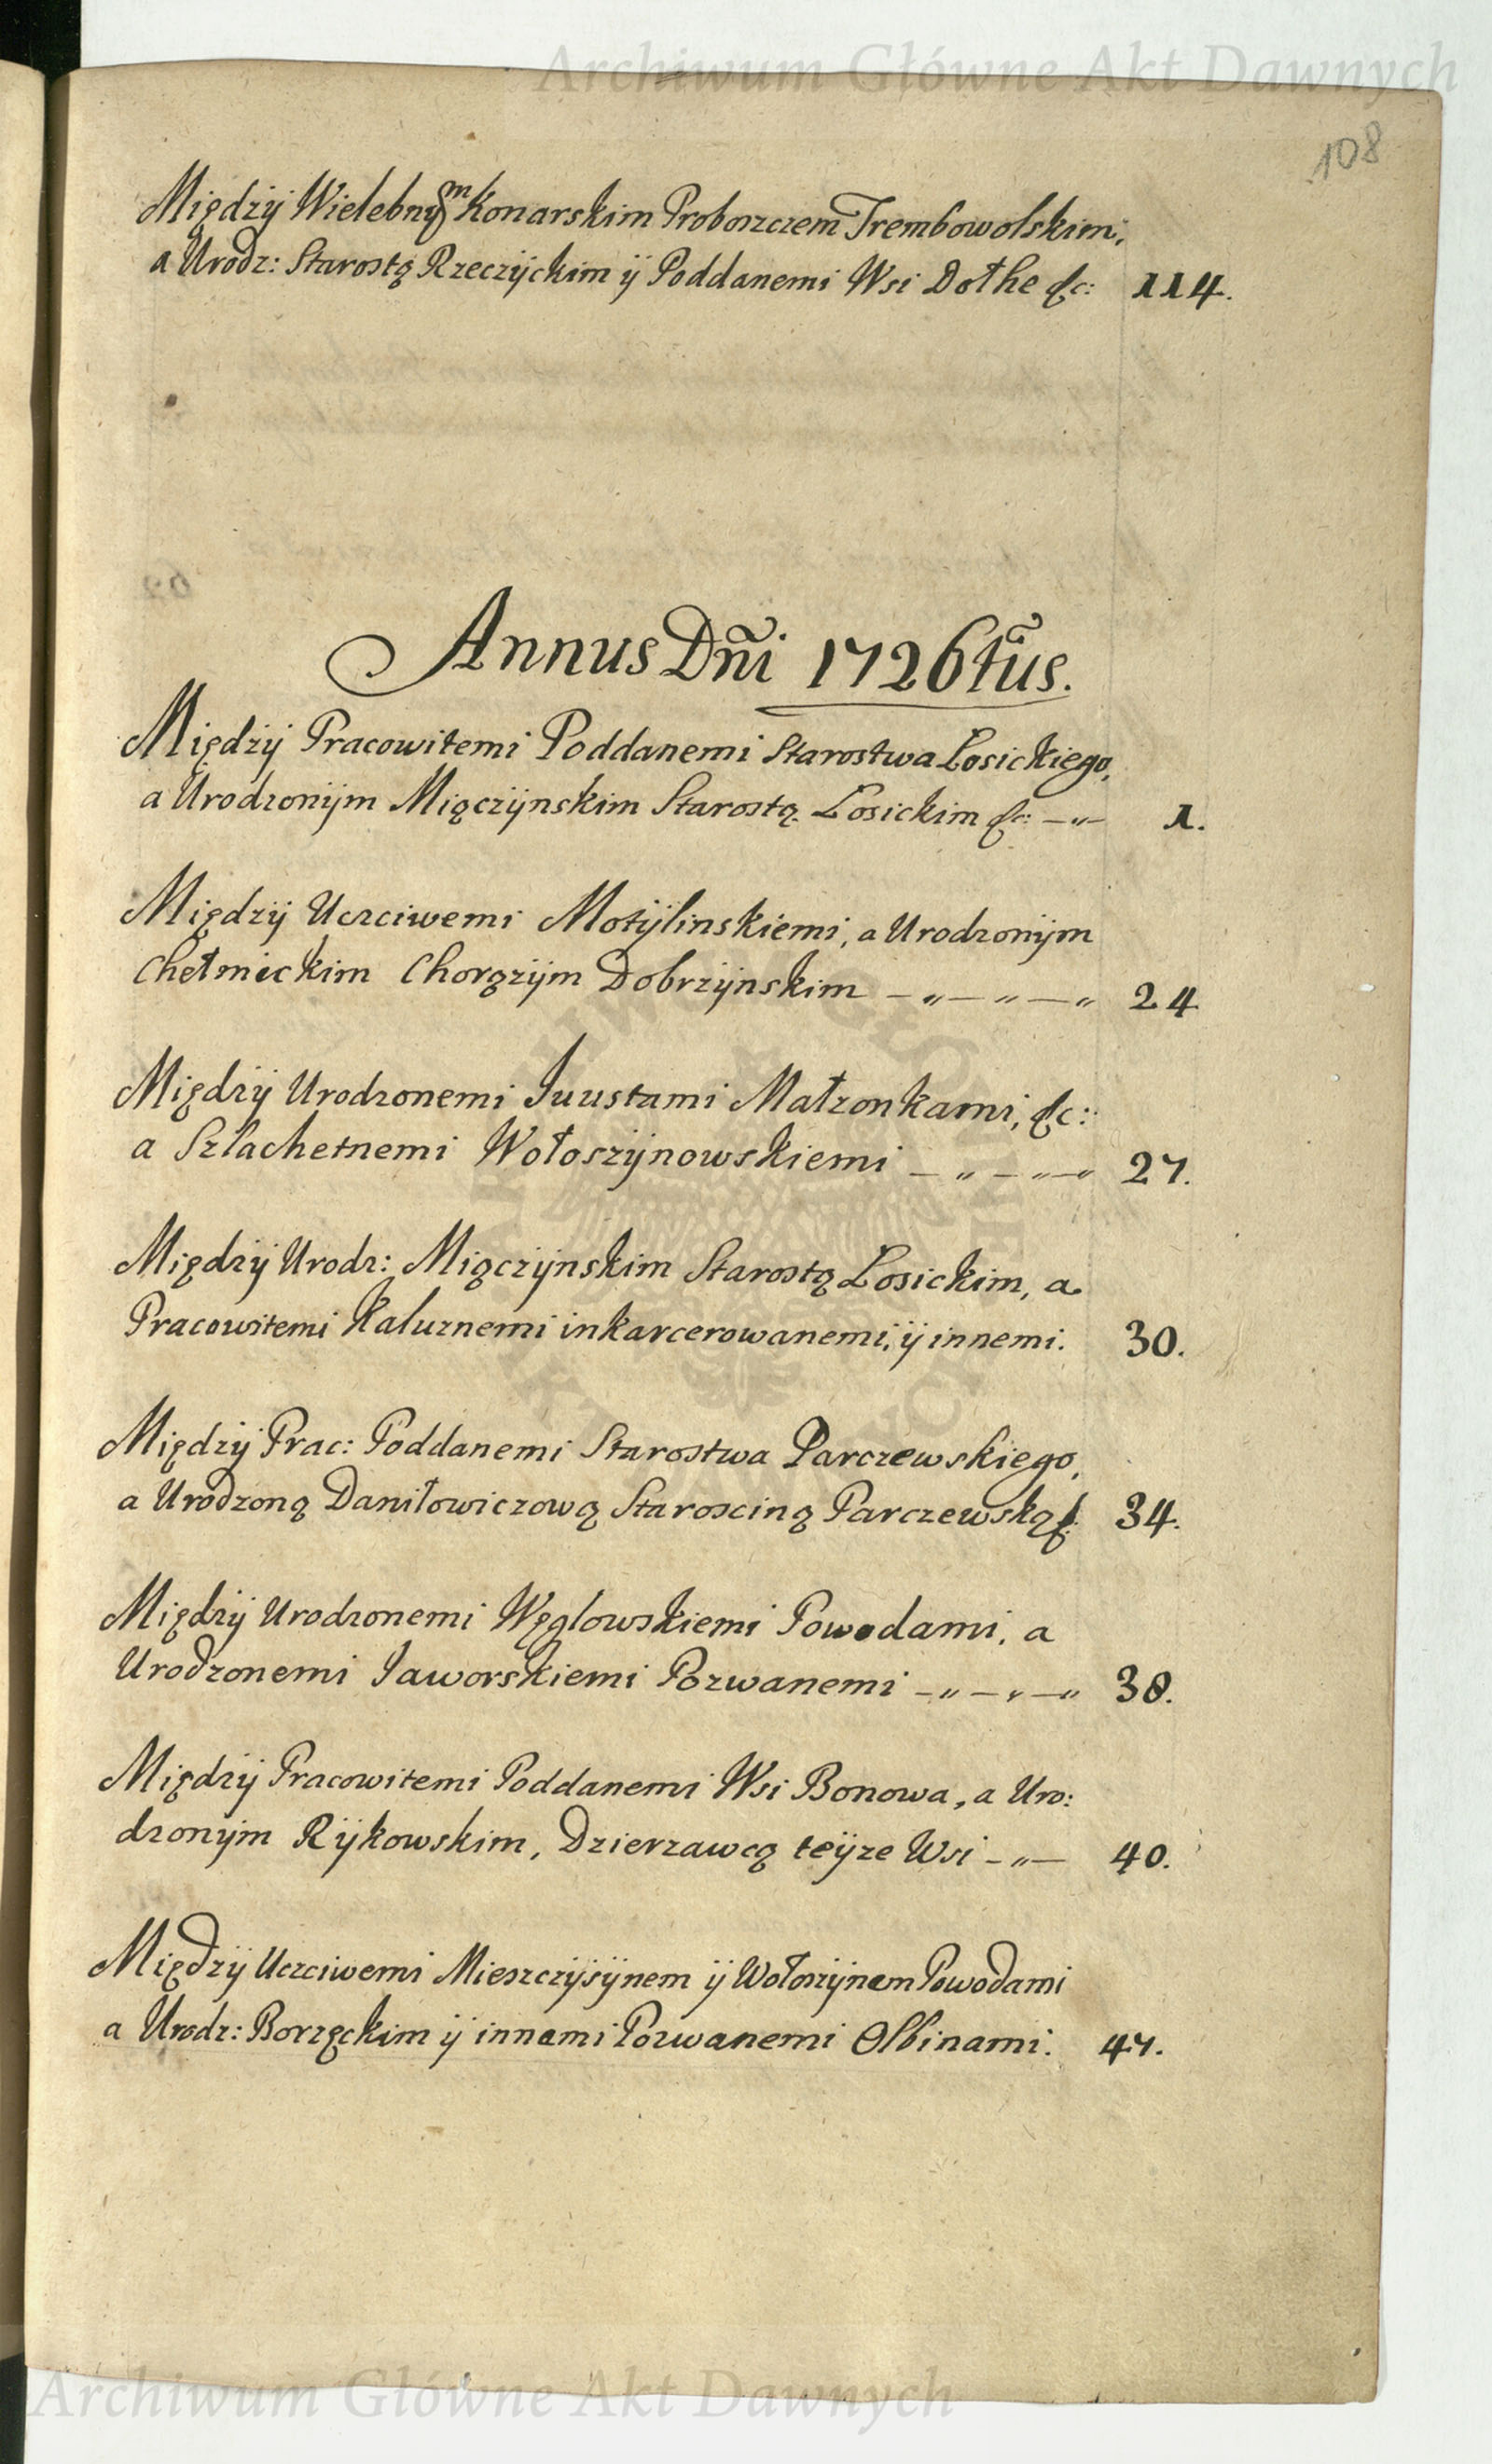 Archiwum Główne Akt Dawnych
108
Międzÿ Wielebnÿm Konarskim Proboszczem Trembowolskim,
a Urodz: Starostą Rzeczÿckim ÿ Poddanemi Wsi Dołhe &c: 114.
Annus Dñi 1726tũs.
Międzÿ Pracowitemi Poddanemi Starostwa Łosickiego,
a Urodzonÿm Miączÿnskim Starostą Łosickim &c: —"— 1.
Międzÿ Uczciwemi Motÿlinskiemi, a Urodzonÿm
Chełmickim Chorązÿm Dobrzÿnskim —"—"—" 24
Międzÿ Urodzonemi Juustami Małzonkami, &c:
a Szlachetnemi Wołoszÿnowskiemi —"—"—" 27.
Międzÿ Urodz: Miączÿnskim Starostą Łosickim, a
Pracowitemi Kaluznemi inkarcerowanemi, ÿ innemi. 30.
Międzÿ Prac: Poddanemi Starostwa Parczewskiego,
a Urodzoną Daniłowiczową Staroscing Parczewską &: 34.
Międzÿ Urodzonemi Węglowskiemi Powodami, a
Urodzonemi Jaworskiemi Pozwanemi —"—"—" 38.
Międzÿ Pracowitemi Poddanemi Wsi Bonowa, a Uro:
dzonÿm Rÿkowskim, Dzierzawcą teÿze Wsi —"— 40.
Międzÿ Uczciwemi Mieszczÿsÿnem ÿ Wołoszÿnem Powodami
a Urodz: Borzęckim ÿ innemi Pozwanemi Olbinami. 47.
Archiwum Główne Akt Dawnych